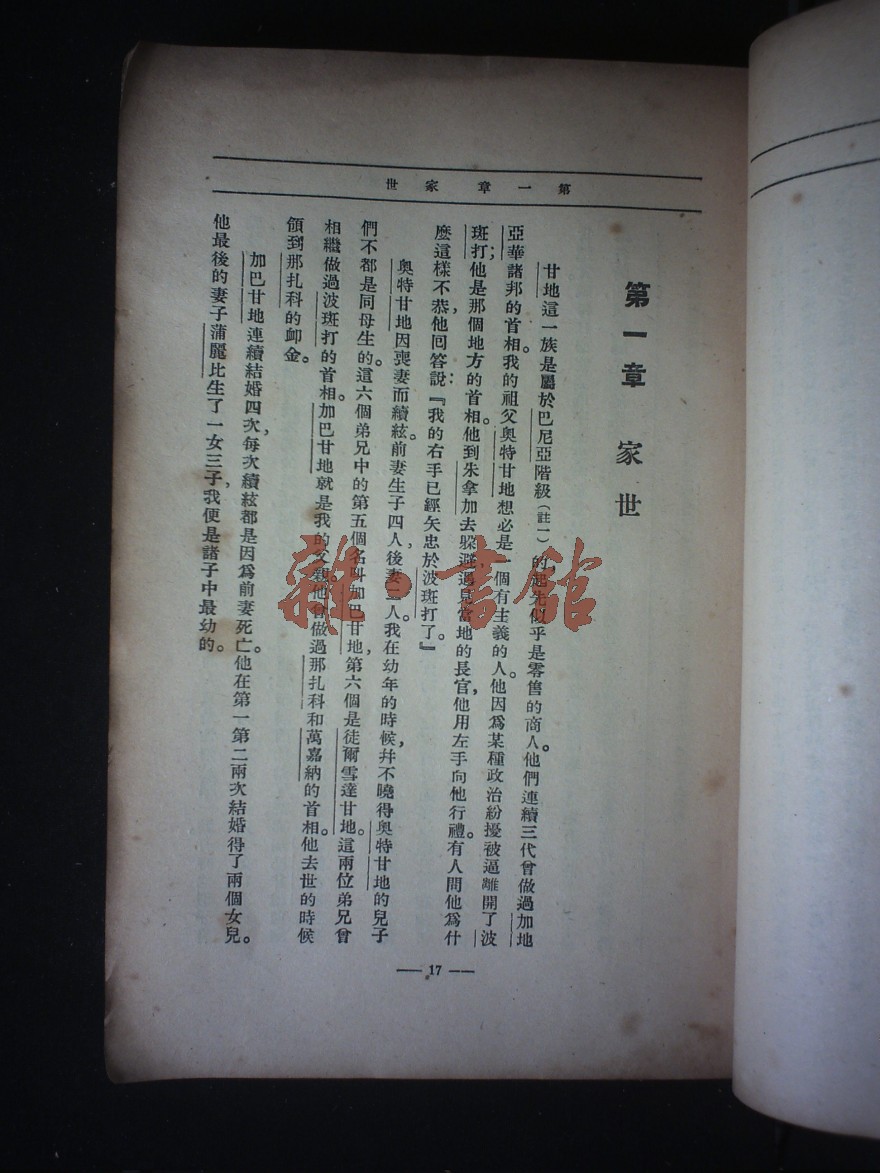 第一章 家世
第一章 家世
甘地這一族是屬於巴尼亞階級（註一）的，起先似乎是零售的商人。他們連續三代曾做過加地
亞華諸邦的首相。我的祖父奧特甘地想必是一個有主義的人。他因爲某種政治紛擾被逼離開了波
斑打；他是那個地方的首相。他到朱拿加去躲避，遇見當地的長官，他用左手向他行禮。有人問他爲什
麼這樣不恭，他回答說：『我的右手已經矢忠於波斑打了。』
奧特甘地因喪妻而續絃。前妻生子四人，後妻二人。我在幼年的時候，幷不曉得奧特甘地的兒子
們不都是同母生的。這六個弟兄中的第五個名叫加巴甘地，第六個是徒爾雪達甘地。這兩位弟兄曾
相繼做過波斑打的首相。加巴甘地就是我的父親。他曾做過那扎科和萬嘉納的首相。他去世的時候
領到那扎科的卹金。
加巴甘地連續結婚四次，每次續絃都是因爲前妻死亡。他在第一第二兩次結婚得了兩個女兒。
他最後的妻子蒲麗比生了一女三子，我便是諸子中最幼的。
— 17 —
雜·書館